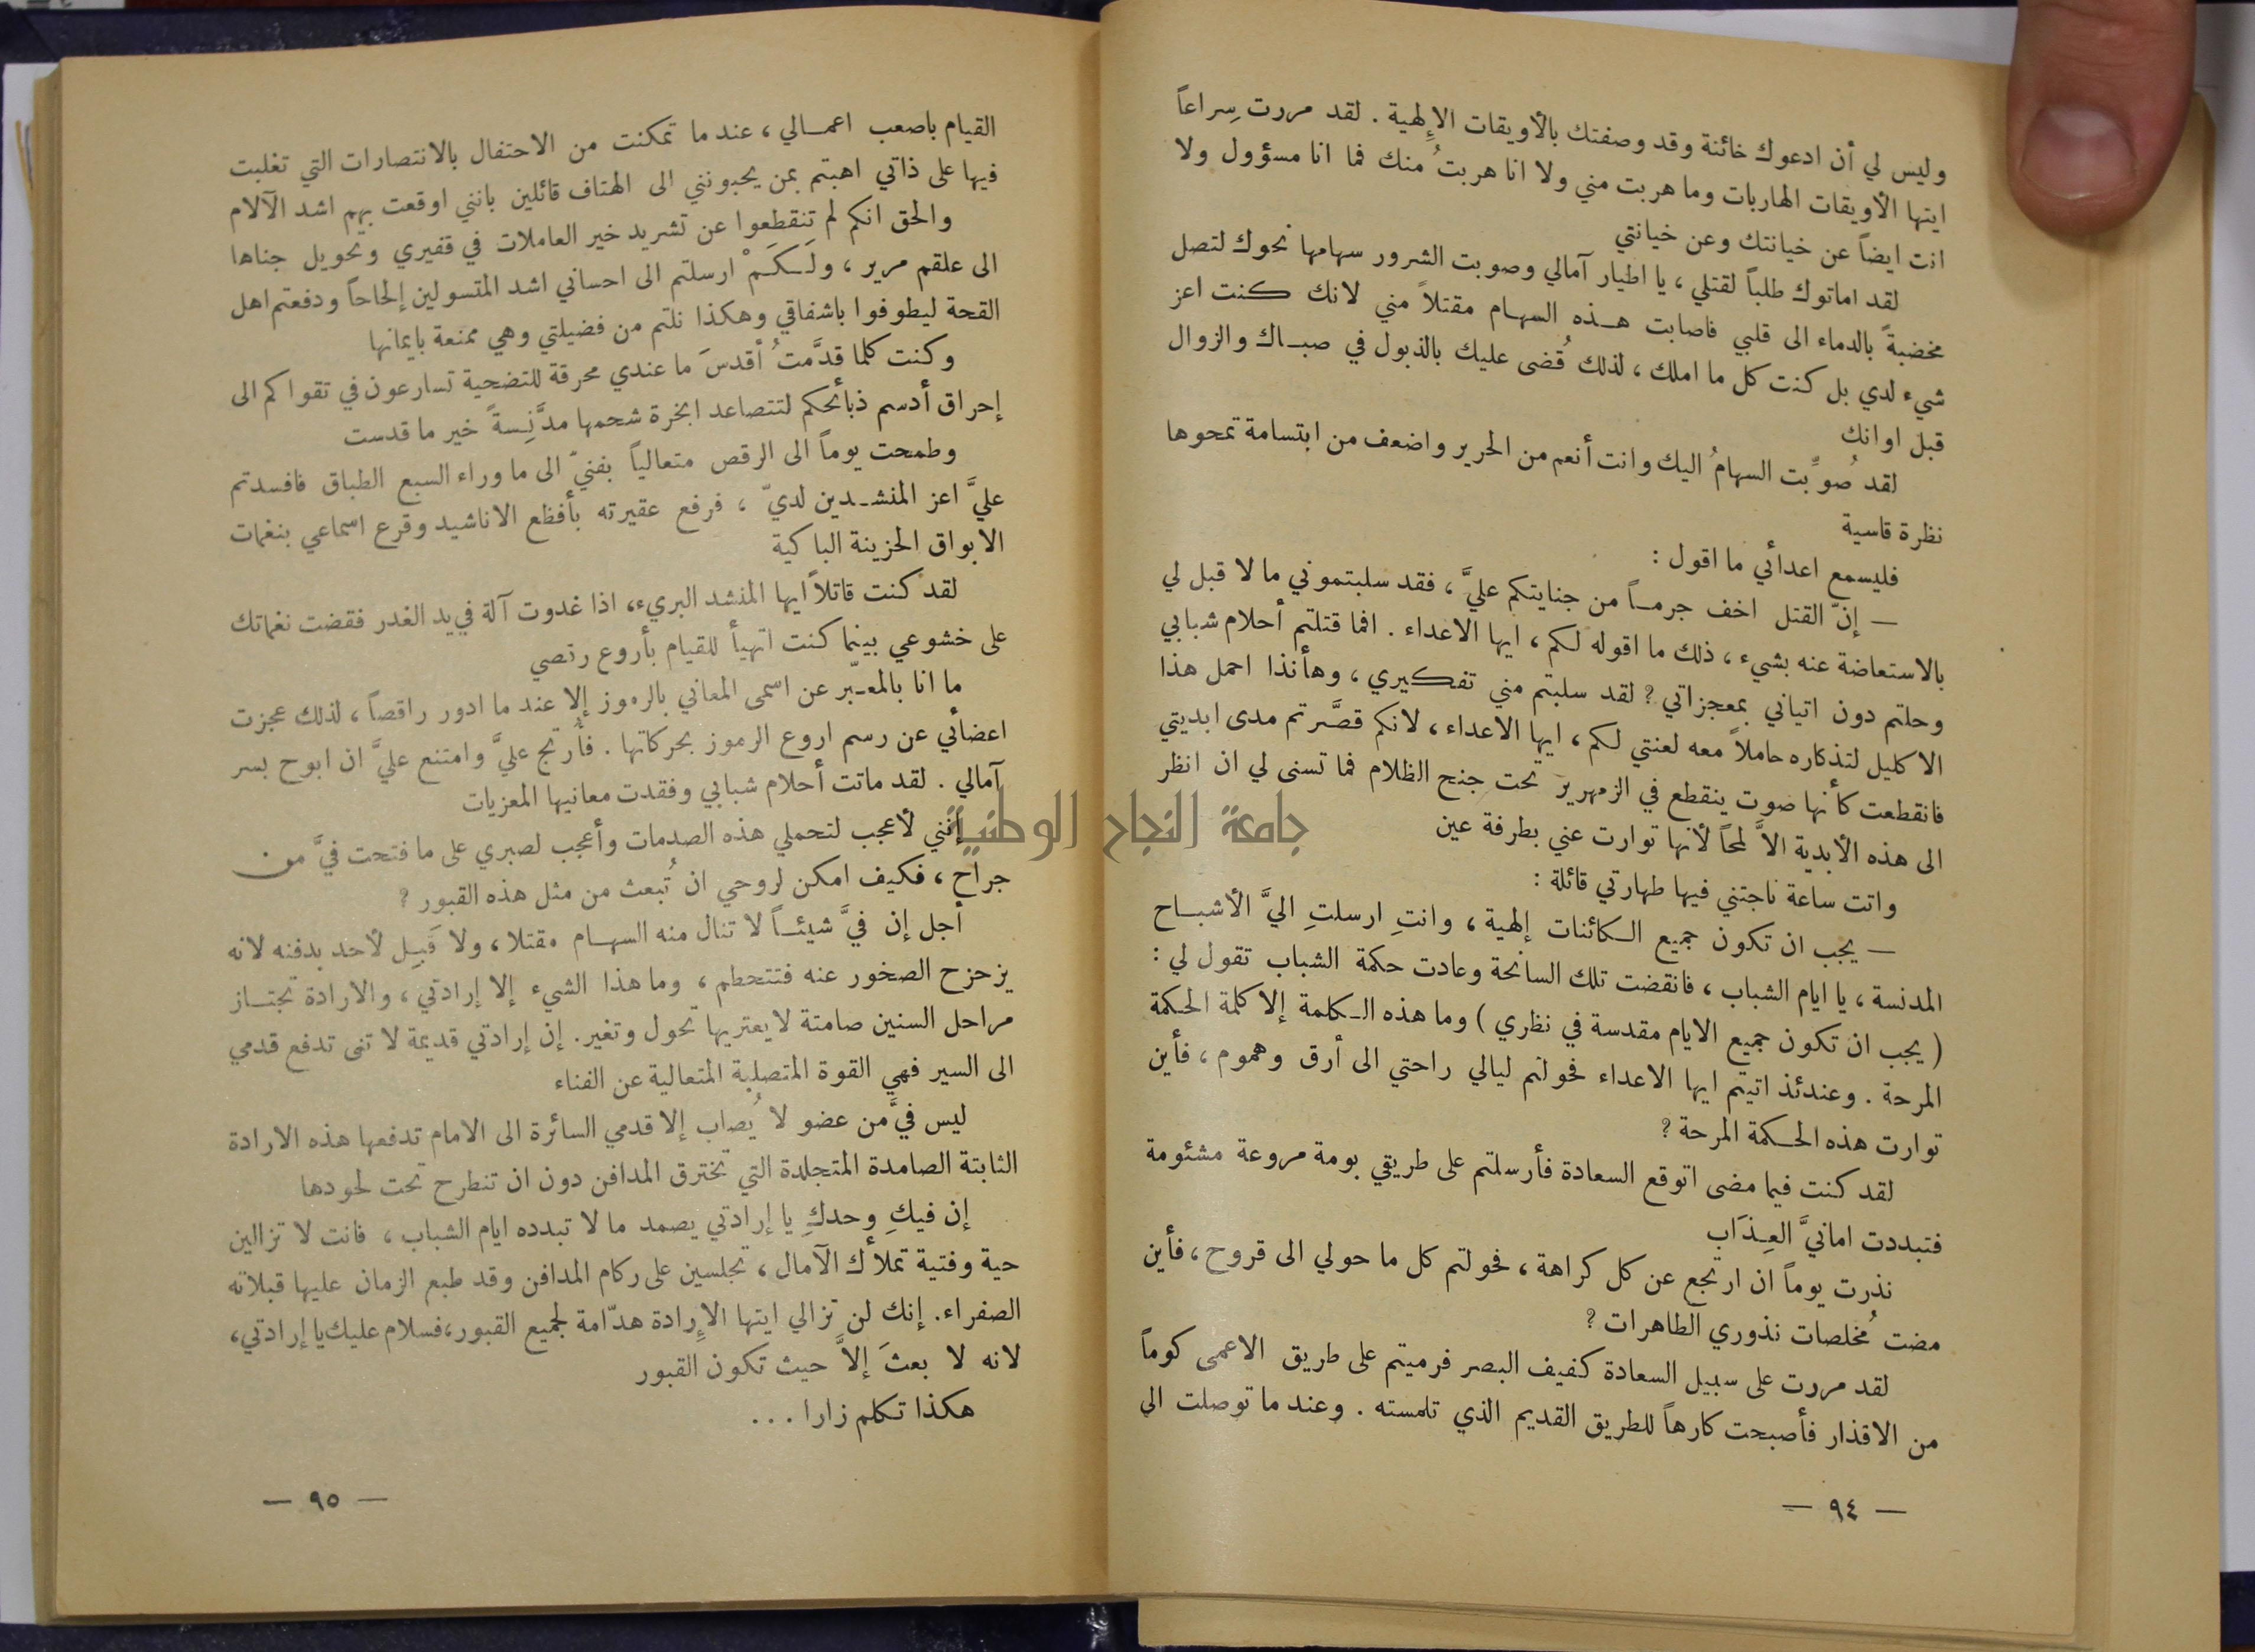 وليس لي أن ادعوك خائنة وقد وصفتك بالأويقات الإلهية . لقد مررت سِراعاً
ايتها الأويقات الهاربات وما هربت مني ولا انا هربتُ منك فما انا مسؤول ولا
انت ايضاً عن خيانتك وعن خيانتي
لقد اماتوك طلباً لقتلي ، يا اطيار آمالي وصوبت الشرور سهامها نحوك لتصل
مخضبةً بالدماء الى قلبي فاصابت هذه السهام مقتلاً مني لانك كنت اعز
شيء لدي بل كنت كل ما املك ، لذلك قُضى عليك بالذبول في صباك والزوال
قبل اوانك
لقد صُوِّبت السهامُ اليك وانت أنعم من الحرير واضعف من ابتسامة تمحوها
نظرة قاسية
فليسمع اعدائي ما اقول :
— إنّ القتل اخف جرماً من جنايتكم عليَّ ، فقد سلبتموني ما لا قبل لي
بالاستعاضة عنه بشيء ، ذلك ما اقوله لكم ، ايها الاعداء . افما قتلتم أحلام شبابي
وحلتم دون اتياني بمعجزاتي ? لقد سلبتم مني تفكيري ، وهأنذا احمل هذا
الاكليل لتذكاره حاملاً معه لعنتي لكم ، ايها الاعداء ، لانكم قصَّرتم مدى ابديتي
فانقطعت كأنها صوت ينقطع في الزمهرير تحت جنح الظلام فما تسنى لي ان انظر
الى هذه الأبدية الاَّ لمحاً لأنها توارت عني بطرفة عين
واتت ساعة ناجتني فيها طهارتي قائلة :
— يجب ان تكون جميع الكائنات إلهية ، وانتِ ارسلتِ اليَّ الأشباح
المدنسة ، يا ايام الشباب ، فانقضت تلك السانحة وعادت حكمة الشباب تقول لي :
( يجب ان تكون جميع الايام مقدسة في نظري ) وما هذه الكلمة إلا كلمة الحكمة
المرحة . وعندئذ اتيتم ايها الاعداء فحولتم ليالي راحتي الى أرق وهموم ، فأين
توارت هذه الحكمة المرحة ?
لقد كنت فيما مضى اتوقع السعادة فأرسلتم على طريقي بومة مروعة مشئومة
فتبددت امانيَّ العِذَاب
نذرت يوماً ان ارتجع عن كل كراهة ، فحولتم كل ما حولي الى قروح ، فأين
مضت مُخلصات نذوري الطاهرات ?
لقد مررت على سبيل السعادة كفيف البصر فرميتم على طريق الاعمى كوماً
من الاقذار فأصبحت كارهاً للطريق القديم الذي تلمسته . وعندما توصلت الى
— ٩٤ —
القيام باصعب اعمالي ، عندما تمكنت من الاحتفال بالانتصارات التي تغلبت
فيها على ذاتي اهبتم بمن يحبونني الى الهتاف قائلين بانني اوقعت بهم اشد الآلام
والحق انكم لم تنقطعوا عن تشريد خير العاملات في قفيري وتحويل جناها
الى علقم مرير ، ولَكَمْ ارسلتم الى احساني اشد المتسولين إلحاحاً ودفعتم اهل
القحة ليطوفوا باشفاقي وهكذا نلتم من فضيلتي وهي ممنعة بايمانها
وكنت كلما قدَّمتُ أقدسَ ما عندي محرقة للتضحية تسارعون في تقواكم الى
إحراق أدسم ذبائحكم لتتصاعد ابخرة شحمها مدَّنِسةً خير ما قدست
وطمحت يوماً الى الرقص متعالياً بفنيّ الى ما وراء السبع الطباق فافسدتم
عليَّ اعز المنشدين لديّ ، فرفع عقيرته بأفظع الاناشيد وقرع اسماعي بنغمات
الابواق الحزينة الباكية
لقد كنت قاتلاً ايها المنشد البريء، اذا غدوت آلة في يد الغدر فقضت نغماتك
على خشوعي بينما كنت اتهيأ للقيام بأروع رتصي
ما انا بالمعبّر عن اسمى المعاني بالرموز إلا عندما ادور راقصاً ، لذلك عجزت
اعضائي عن رسم اروع الرموز بحركاتها . فأُرتج عليَّ وامتنع عليَّ ان ابوح بسر
آمالي . لقد ماتت أحلام شبابي وفقدت معانيها المعزيات
إنني لأعجب لتحملي هذه الصدمات وأعجب لصبري على ما فتحت فيَّ من
جراح ، فكيف امكن لروحي ان تُبعث من مثل هذه القبور ?
أجل إن فيَّ شيئاً لا تنال منه السهام مقتلا ، ولا قَبِل لأحد بدفنه لانه
يزحزح الصخور عنه فتتحطم ، وما هذا الشيء إلا إرادتي ، والارادة تجتاز
مراحل السنين صامتة لا يعتريها تحول وتغير. إن إرادتي قديمة لا تنى تدفع قدمي
الى السير فهي القوة المتصلبة المتعالية عن الفناء
ليس فيَّ من عضو لا يُصاب إلا قدمي السائرة الى الامام تدفعها هذه الارادة
الثابتة الصامدة المتجلدة التي تخترق المدافن دون ان تنطرح تحت لحودها
إن فيكِ وحدكِ يا إرادتي يصمد ما لا تبدده ايام الشباب ، فانت لا تزالين
حية وفتية تملأك الآمال ، تجلسين على ركام المدافن وقد طبع الزمان عليها قبلاته
الصفراء. إنك لن تزالي ايتها الإرادة هدّامة لجميع القبور،فسلام عليك يا إرادتي،
لانه لا بعثَ إلاَّ حيث تكون القبور
هكذا تكلم زارا . . .
— ٩٥ —
جامعة النجاح الوطنية